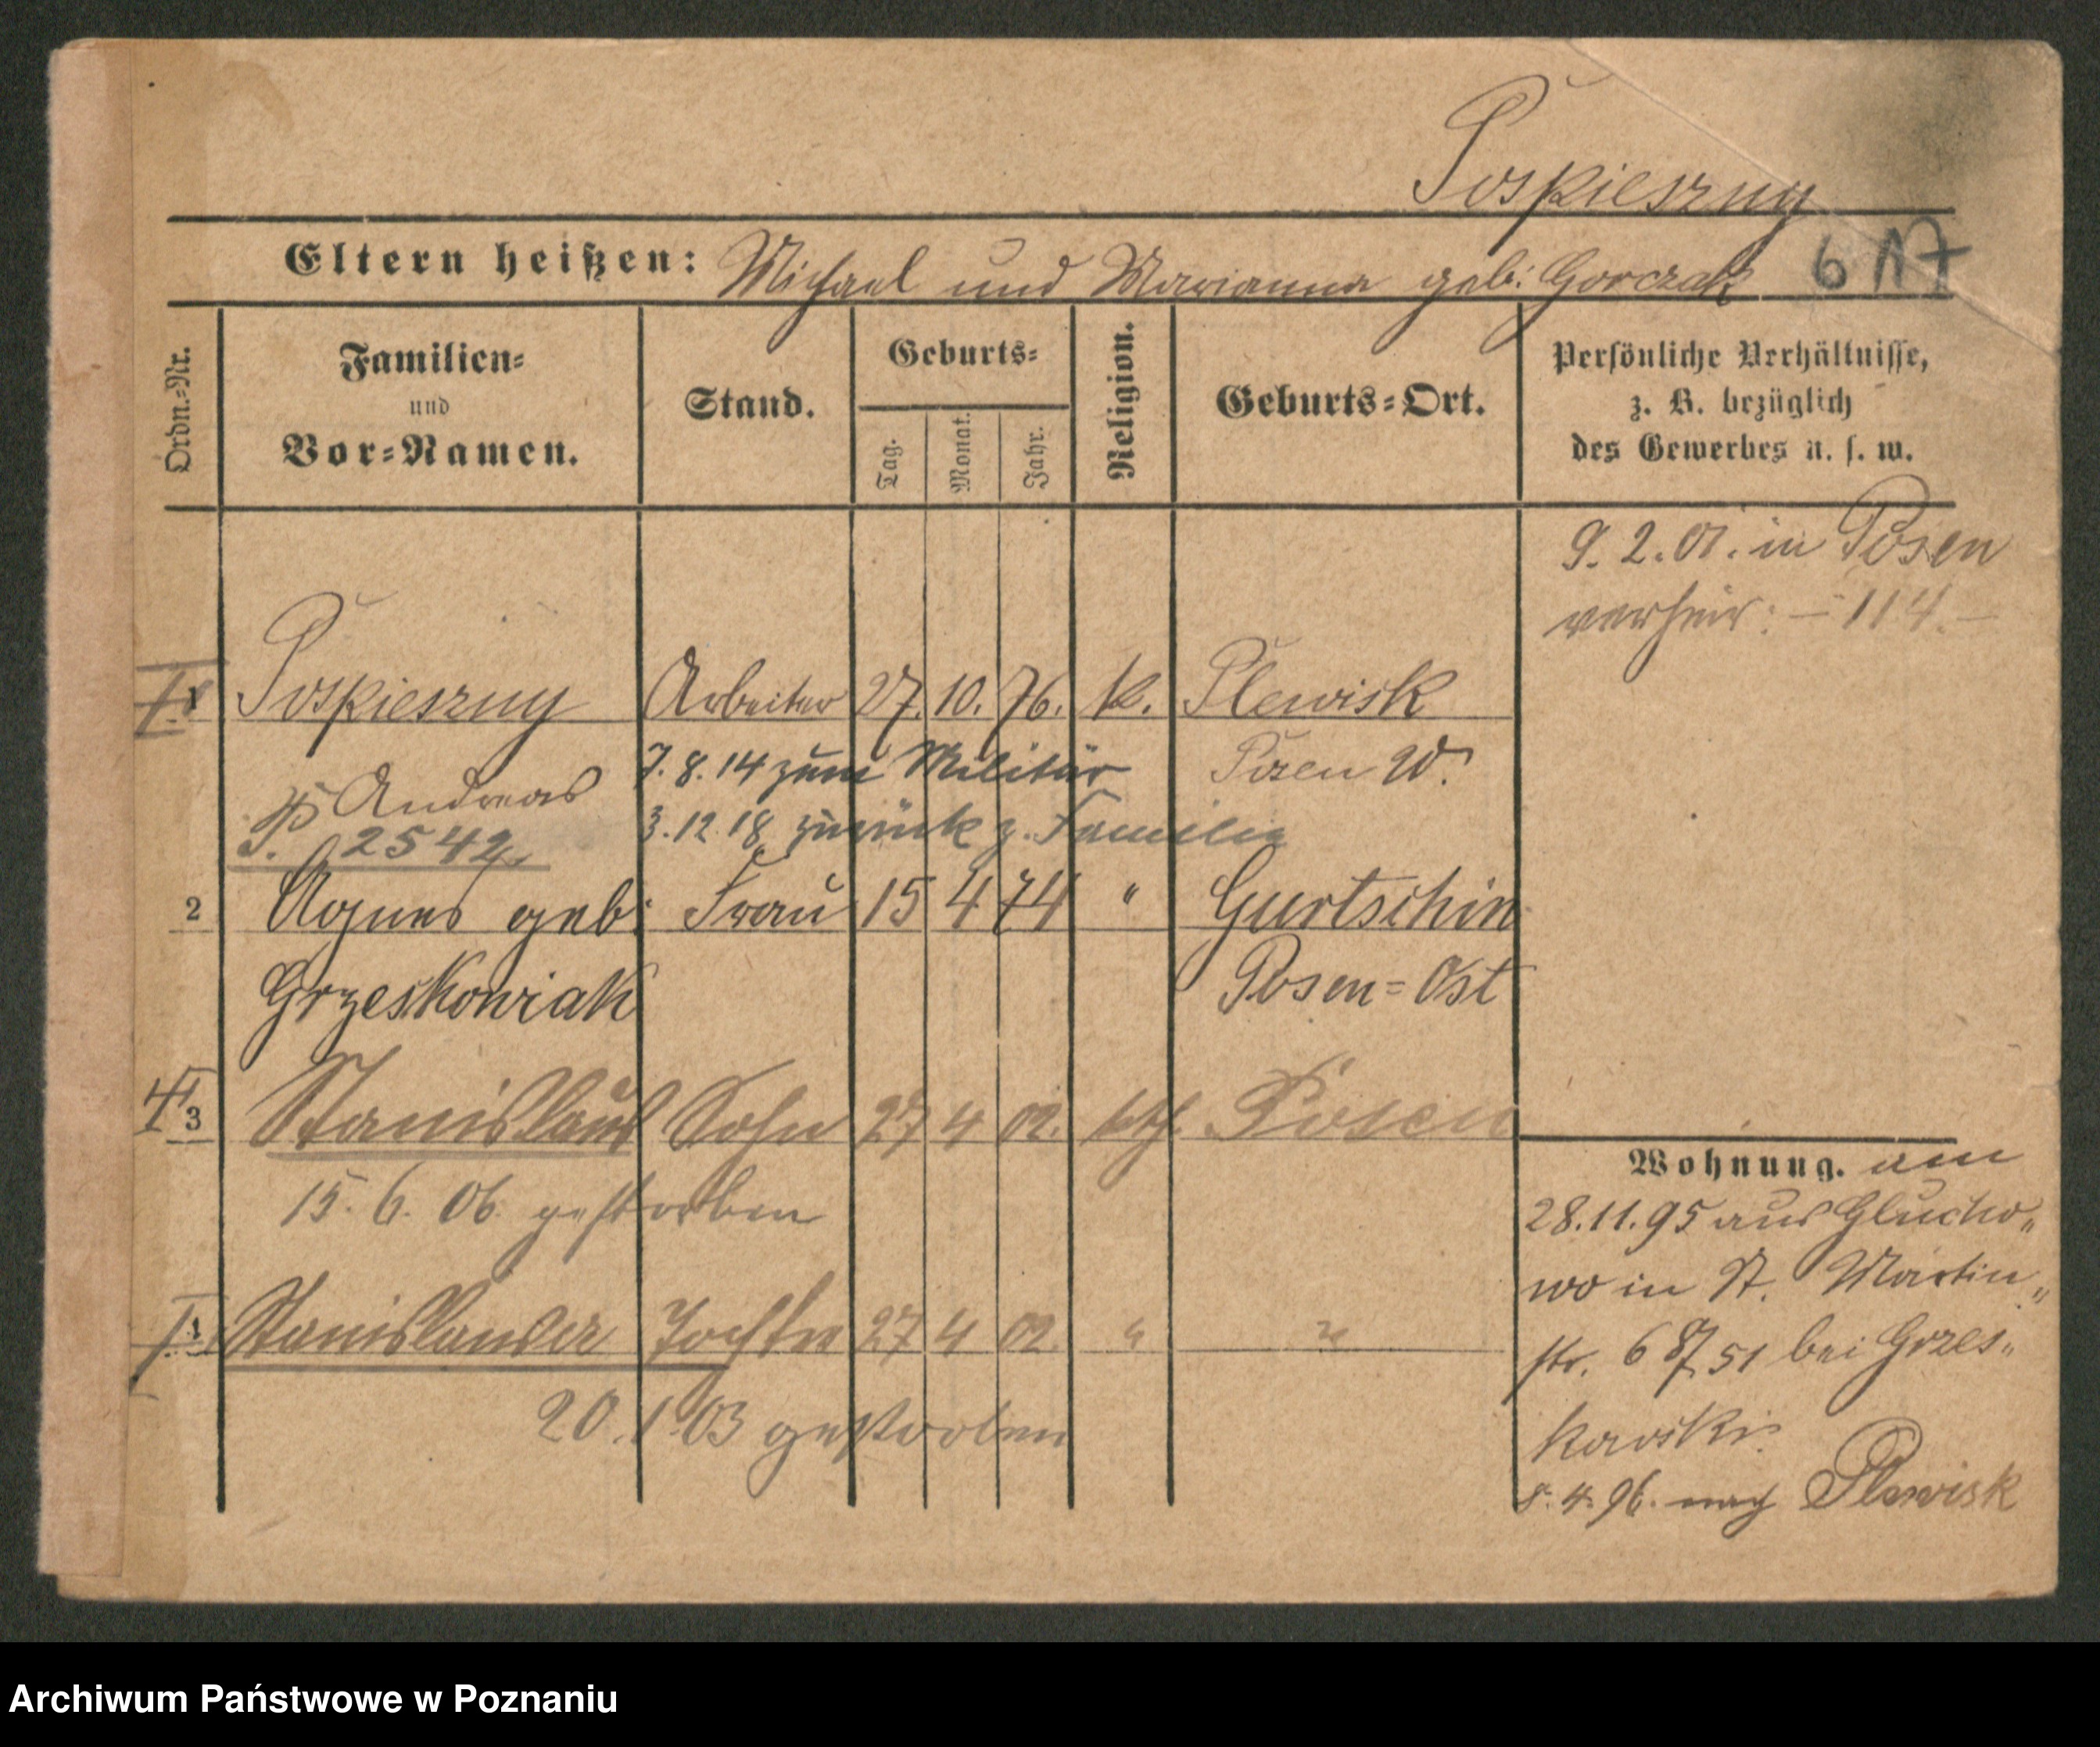 Pospieszny
Eltern heißen: Michael und Marianna geb: Gorczak 617
Ordn.-Nr.
Familien-
und
Vor-Namen.
Stand.
Geburts-
Tag.
Monat.
Jahr.
Religion.
Geburts-Ort.
Persönliche Verhältnisse,
z. B. bezüglich
des Gewerbes u. s. w.
9. 2. 01. in Posen
verheir: – 114. –
1 Pospieszny Arbeiter 27. 10. 76. k. Plewisk
Andreas 7. 8. 14 zum Militär Posen W.
P. 2542 3. 12. 18 zurück z. Familie
2 Agnes geb: Frau 15 4 74 " Gurtschin
Grzeskowiak Posen=Ost
3 Stanislaus Sohn 27 4 02. kth. Posen
15. 6. 06. gestorben
Stanislawa Tochter 27 4 02. " "
20. 1. 03 gestorben
Wohnung. am
28. 11. 95 aus Glucho„
wo in St. Martin„
str. 6 bei Grzes„
kowski.
8. 4. 96. nach Plewisk
Archiwum Państwowe w Poznaniu